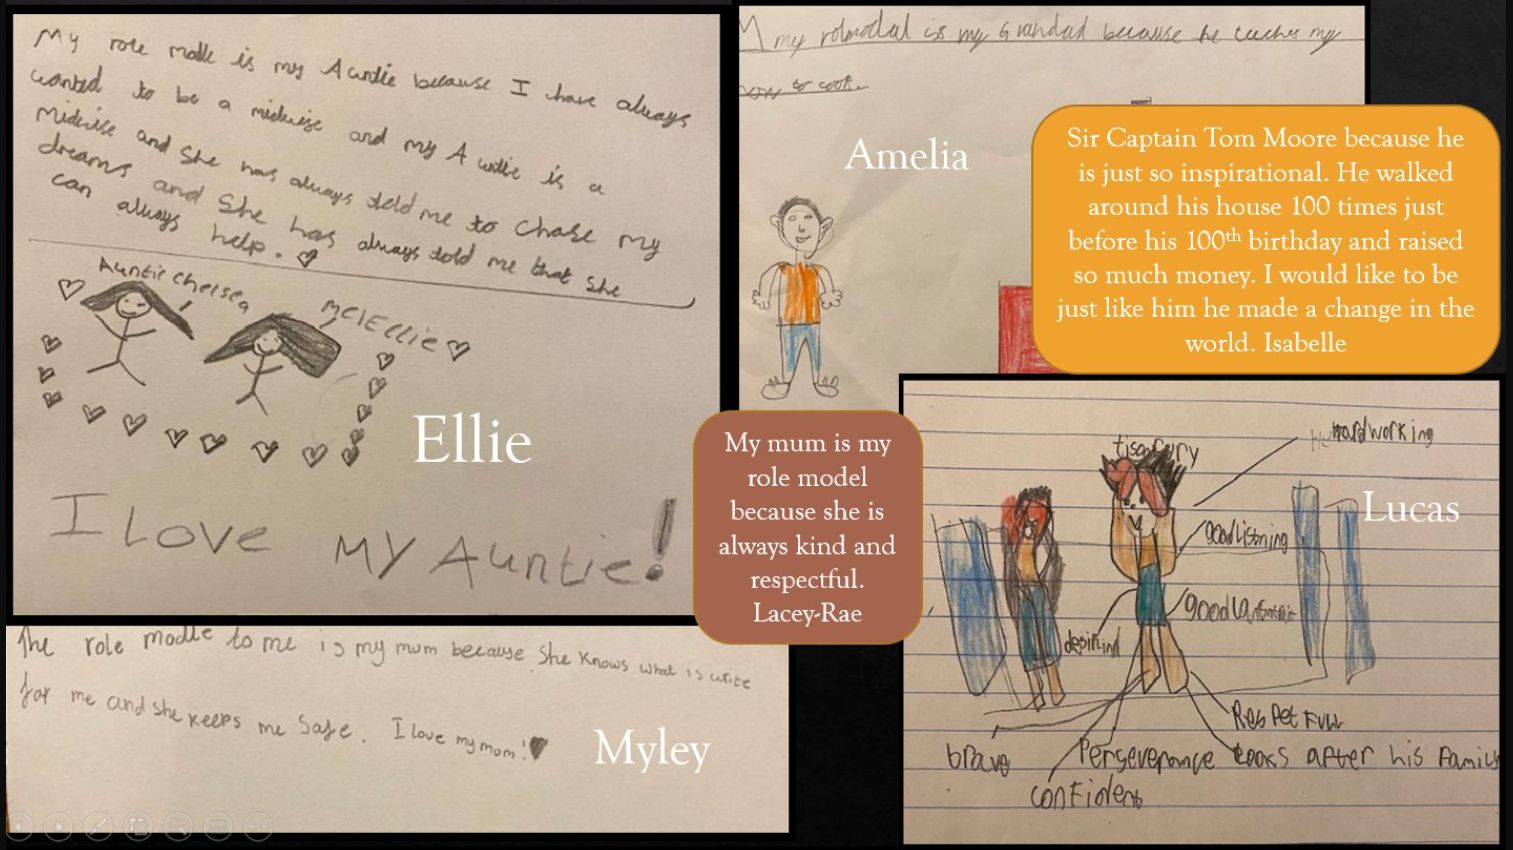 My role modle is my Auntie because I have always
wanted to be a midwise and my Auntie is a
midwise and She has always told me to chase my
dreams and She has always told me that She
can always help.
Auntie Chelsea
me/Ellie
Ellie
I LOVE MY Auntie!
My my rolmodal is my Grandad because he teaches my
how to cook.
Amelia
Sir Captain Tom Moore because he
is just so inspirational. He walked
around his house 100 times just
before his 100th birthday and raised
so much money. I would like to be
just like him he made a change in the
world. Isabelle
My mum is my
role model
because she is
always kind and
respectful.
Lacey-Rae
The role modle to me is my mum because She knows what is write
for me and she keeps me Safe. I love my mom!
Myley
hardworking
Lucas
goodlistning
good
brave
Perseverance
confident
ResPetFull
Looks after his Family